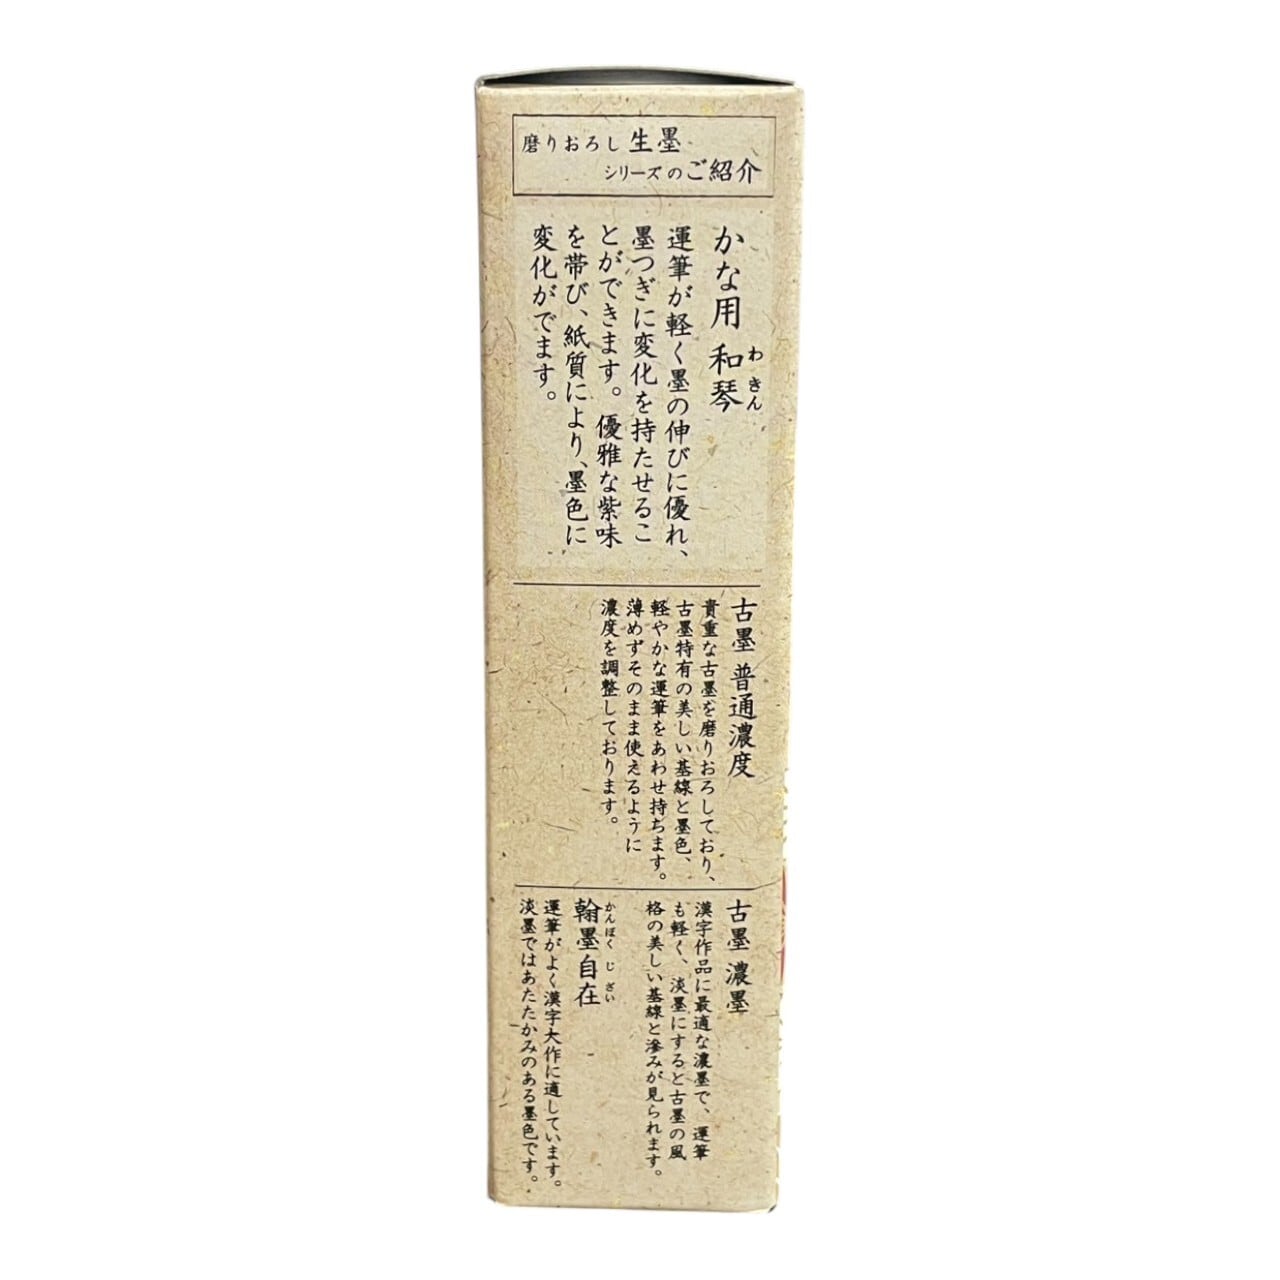 磨りおろし生墨
シリーズのご紹介
かな用 和琴
わきん
運筆が軽く墨の伸びに優れ、
墨つぎに変化を持たせるこ
とができます。優雅な紫味
を帯び、紙質により、墨色に
変化がでます。
古墨 普通濃度
貴重な古墨を磨りおろしており、
古墨特有の美しい基線と墨色、
軽やかな運筆をあわせ持ちます。
薄めずそのまま使えるように
濃度を調整しております。
古墨 濃墨
漢字作品に最適な濃墨で、運筆
も軽く、淡墨にすると古墨の風
格の美しい基線と滲みが見られます。
翰墨自在
かんぼくじざい
運筆がよく漢字大作に適しています。
淡墨ではあたたかみのある墨色です。